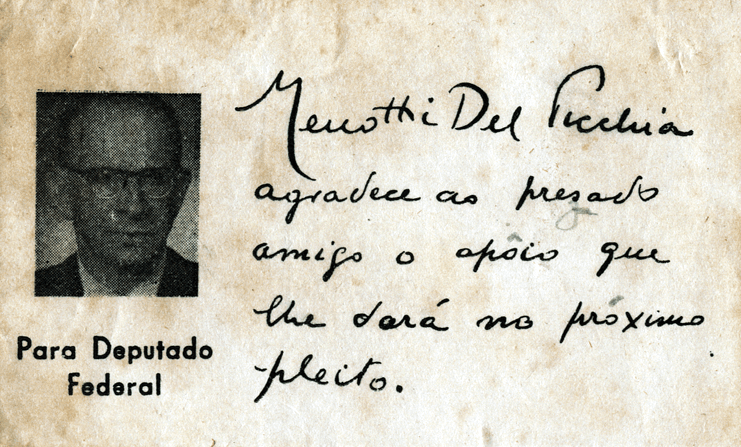 Menotti Del Picchia
agradece ao presado
amigo o apôio que
lhe dará no próximo
pleito.
Para Deputado
Federal